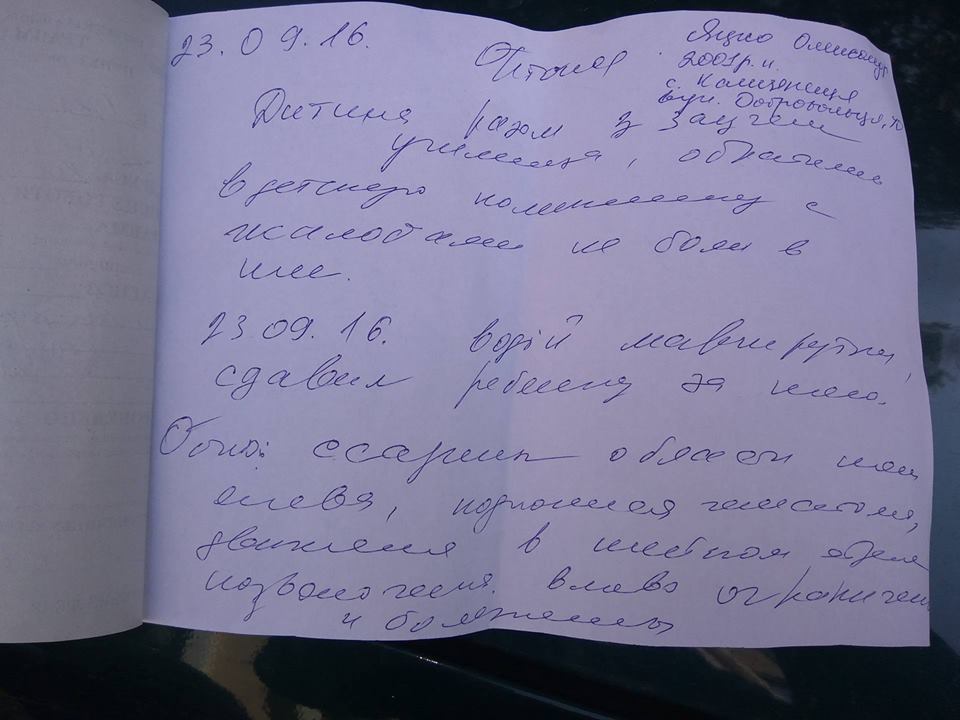 23.09.16.
Яцко Олександр
2001 р.н.
с. Камʼяниця
вул. Добровольця,
Дитина разом з завучем
училища, обратились
в детскую поликлинику с
жалобами на боли в
шее.
23 09. 16. водій маршрутки,
сдавил ребенку за шею.
Обно: ссадины области шеи
слева, подкожная гематома,
движения в шейном отделе
позвоночника влево ограничены
и болезненны